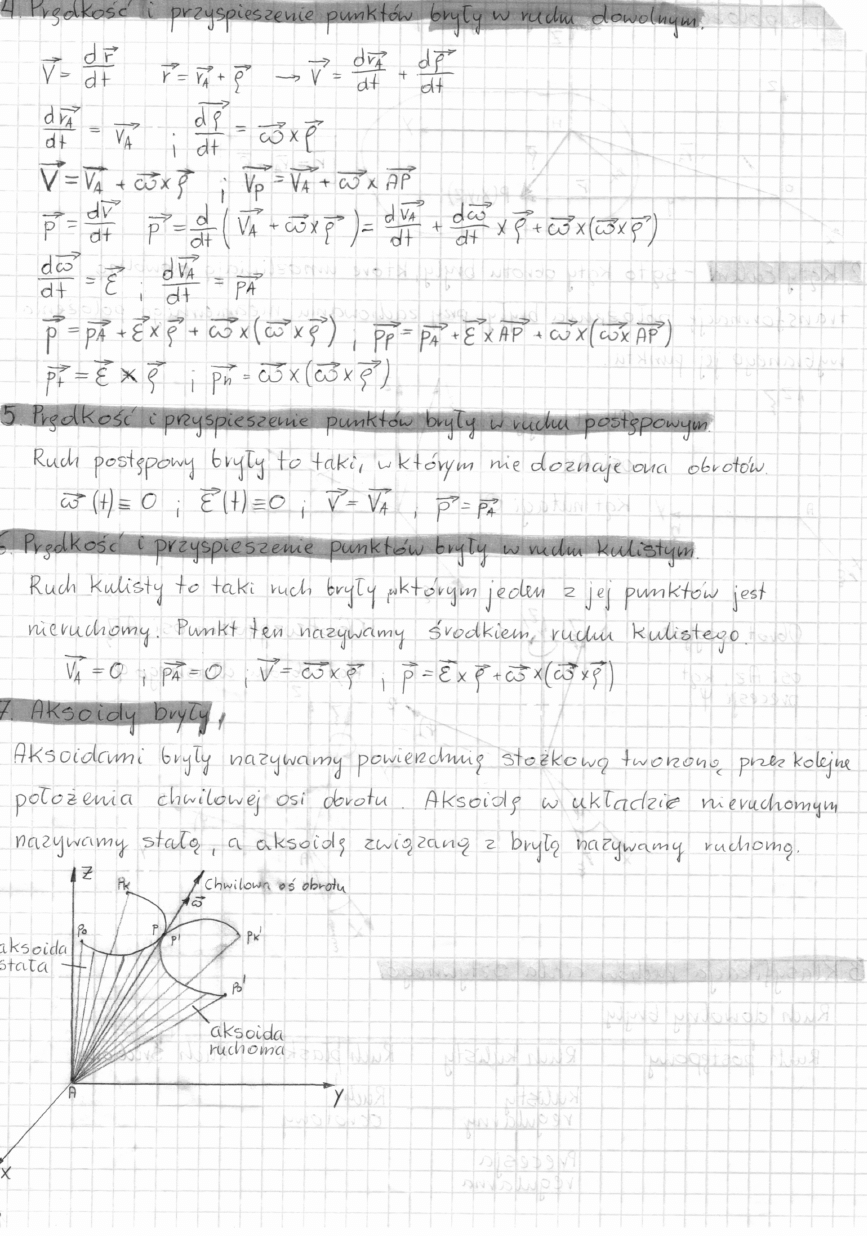 4. Prędkość i przyspieszenie punktów bryły w ruchu dowolnym.
V⃗ = dr⃗/dt r⃗ = r⃗A + ρ⃗ → V⃗ = dr⃗A/dt + dρ⃗/dt
dr⃗A/dt = V⃗A ; dρ⃗/dt = ω⃗ × ρ⃗
V⃗ = V⃗A + ω⃗ × ρ⃗ ; V⃗P = V⃗A + ω⃗ × AP⃗
p⃗ = dV⃗/dt p⃗ = d/dt ( V⃗A + ω⃗ × ρ⃗ ) = dV⃗A/dt + dω⃗/dt × ρ⃗ + ω⃗ × (ω⃗ × ρ⃗)
dω⃗/dt = ε⃗ ; dV⃗A/dt = p⃗A
p⃗ = p⃗A + ε⃗ × ρ⃗ + ω⃗ × (ω⃗ × ρ⃗) ; p⃗P = p⃗A + ε⃗ × AP⃗ + ω⃗ × (ω⃗ × AP⃗)
p⃗t = ε⃗ × ρ⃗ ; p⃗n = ω⃗ × (ω⃗ × ρ⃗)
5 Prędkość i przyspieszenie punktów bryły w ruchu postępowym.
Ruch postępowy bryły to taki, w którym nie doznaje ona obrotów.
ω⃗(t) ≡ 0 ; ε⃗(t) ≡ 0 ; V⃗ = V⃗A ; p⃗ = p⃗A
6. Prędkość i przyspieszenie punktów bryły w ruchu kulistym.
Ruch kulisty to taki ruch bryły w którym jeden z jej punktów jest
nieruchomy. Punkt ten nazywamy środkiem ruchu kulistego.
V⃗A = 0 ; p⃗A = 0 ; V⃗ = ω⃗ × ρ⃗ ; p⃗ = ε⃗ × ρ⃗ + ω⃗ × (ω⃗ × ρ⃗)
7. Aksoidy bryły.
Aksoidami bryły nazywamy powierzchnię stożkową tworzoną przez kolejne
położenia chwilowej osi obrotu. Aksoidę w układzie nieruchomym
nazywamy stałą, a aksoidę związaną z bryłą nazywamy ruchomą.
Z
Pk
Chwilowa oś obrotu
ω⃗
Po
P
P'
Pk'
aksoida
stała
Po'
aksoida
ruchoma
A
Y
X